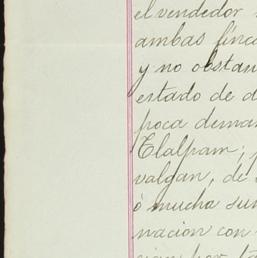 el vendedor
ambas finc
y no obstan
estado de d
poca deman
Tlalpam;
valgan, de
ó mucha sum
nacion con